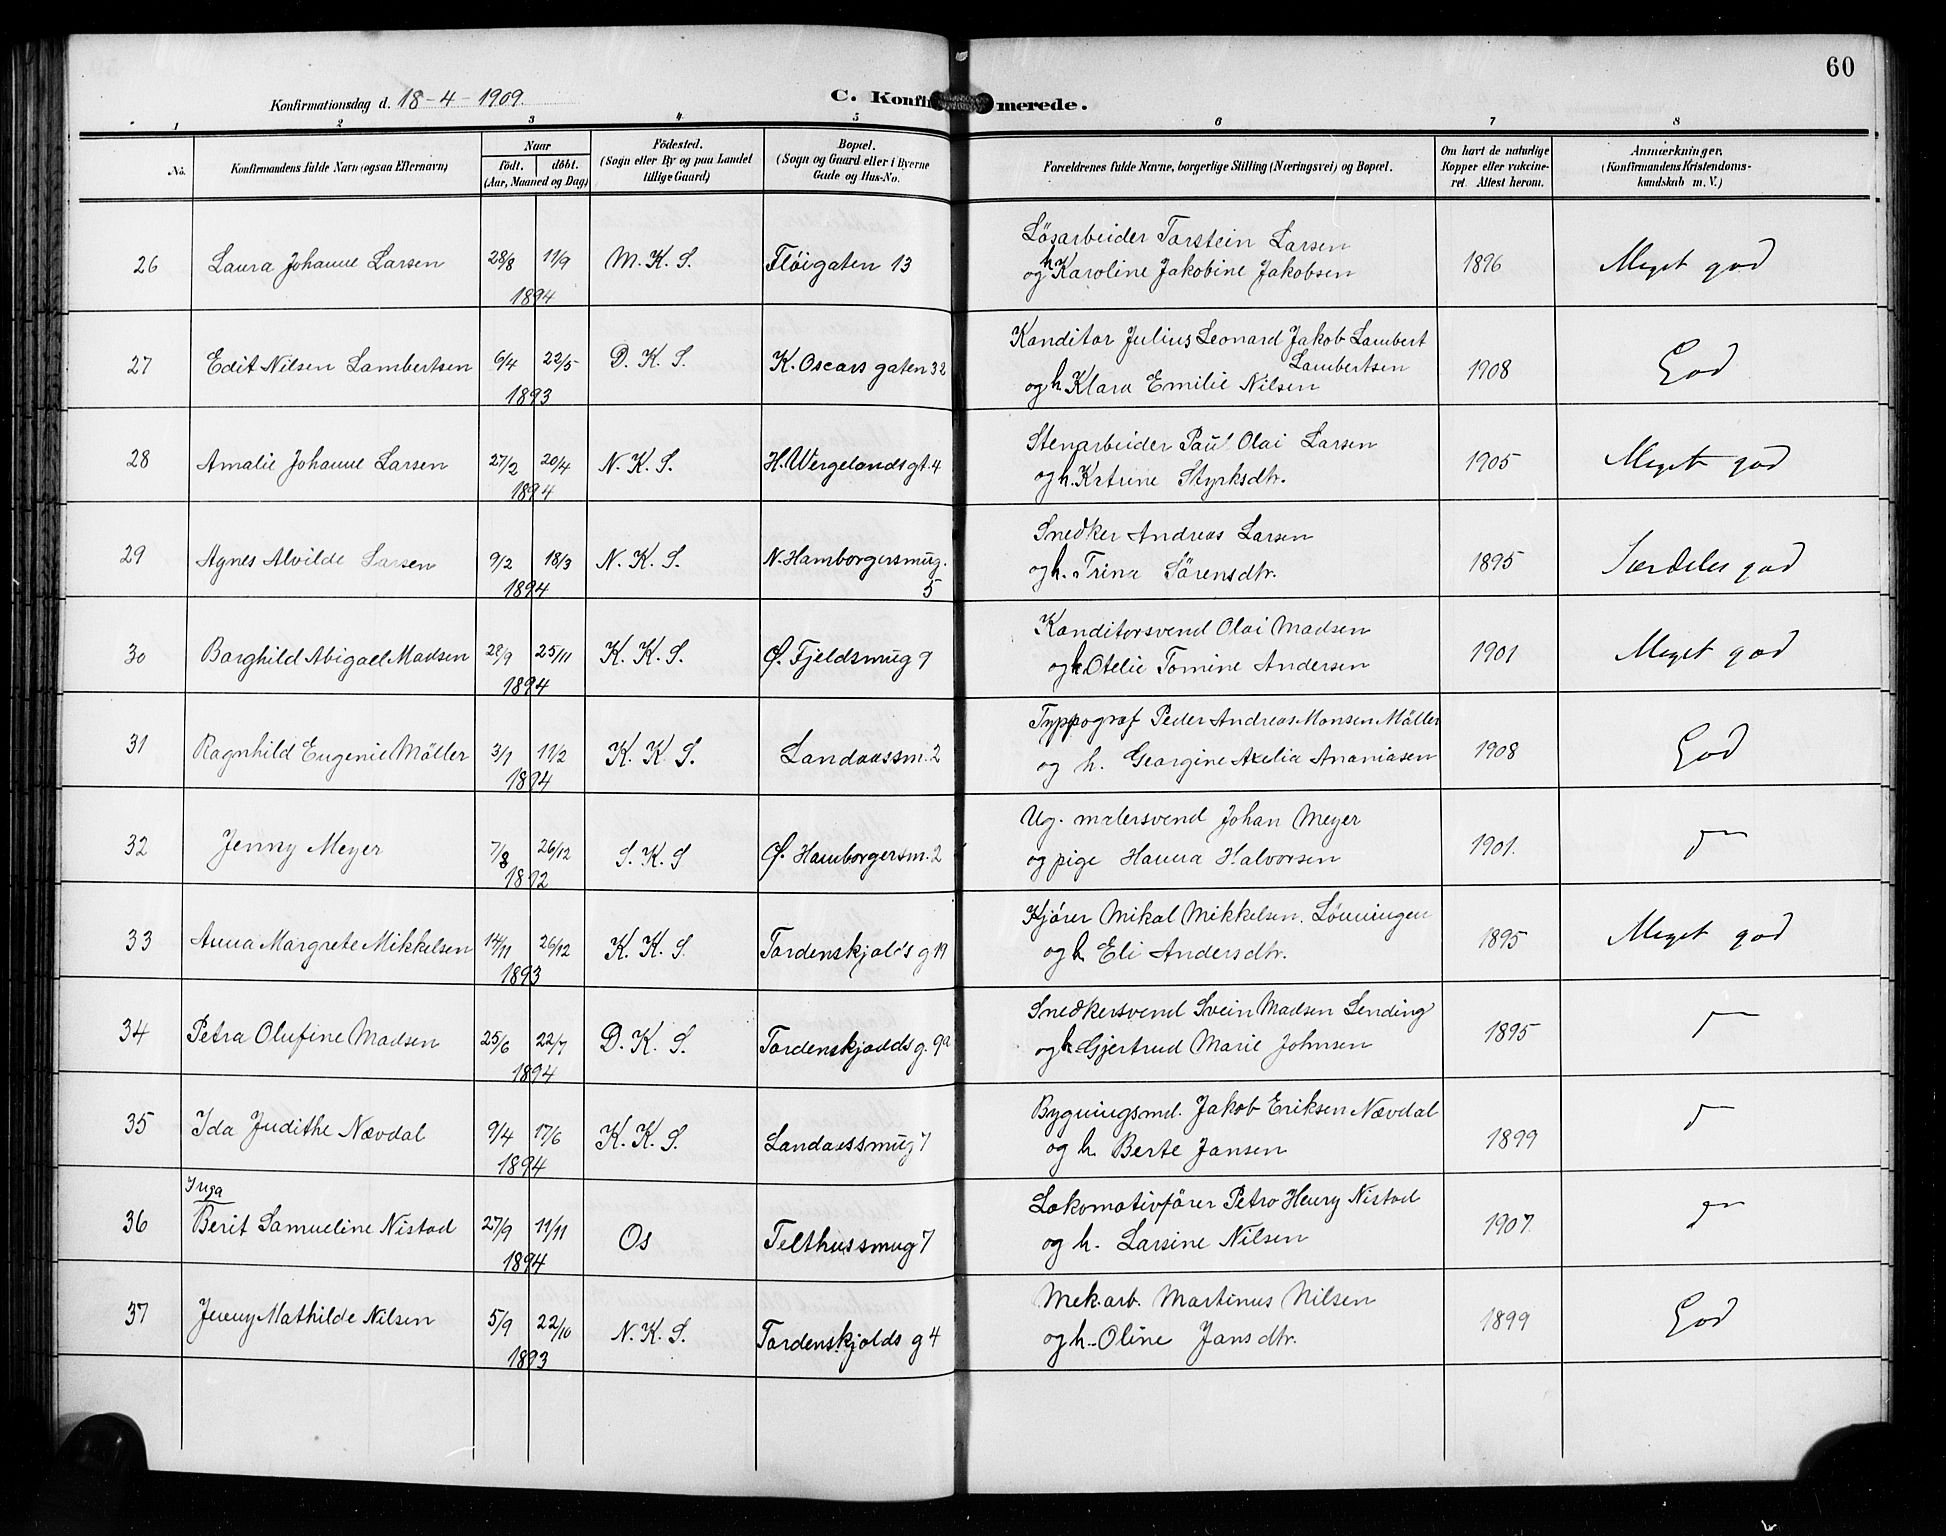 60
Konfirmationsdag d. 18-4-1909.
C. Konfirmerede.
1 2 3 4 5 6 7 8
No. Konfirmandens fulde Navn (ogsaa Efternavn) Naar födt. döbt. (Aar, Maaned og Dag) Födested. (Sogn eller By og paa Landet tillige Gaard) Bopæl. (Sogn og Gaard eller i Byerne Gade og Hus-No. Forældrenes fulde Navne, borgerlige Stilling (Næringsvei) og Bopæl. Om havt de naturlige Kopper eller vakcineret. Attest herom. Anmærkninger, (Konfirmandens Kristendomskundskab m. V.)
26 Laura Johanne Larsen 28/8 11/9 1894 M. K. S. Flöigaten 13 Løsarbeider Torstein Larsen
og h. Karoline Jakobine Jakobsen 1896 Meget god
27 Edit Nilsen Lambertsen 6/4 22/5 1893 D. K. S. K. Oscars gaten 32 Konditor Julius Leonard Jakob Lambert
Lambertsen
og h. Klara Emilie Nilsen 1908 God
28 Amalie Johanne Larsen 27/2 20/4 1894 N. K. S. H. Wergelandsgt. 4 Stenarbeider Paul Olai Larsen
og h. Katrine Styrksdtr. 1905 Meget god
29 Agnes Alvilde Larsen 9/2 18/3 1894 N. K. S. N. Hamborgersmug. 5 Snedker Andreas Larsen
og h. Trina Sörensdtr. 1895 Særdeles god
30 Borghild Abigael Madsen 28/9 25/11 1894 K. K. S. Ø. Fjeldsmug 9 Konditorsvend Olai Madsen
og h. Otelie Tomine Andersen 1901 Meget god
31 Ragnhild Eugenie Möller 3/1 11/2 1894 K. K. S. Landaassm. 2 Typpograf Peder Andreas Monsen Möller
og h. Georgine Axelia Ananiasen 1908 God
32 Jenny Meyer 7/8 26/12 1892 S. K. S Ø. Hamborgersm. 2 Ug. malersvend Johan Meyer
og pige Hanna Halvorsen 1901.
33 Anna Margrete Mikkelsen 14/11 26/12 1893 K. K. S. Tordenskjolds g 19 Kjører Mikal Mikkelsen Lönningen
og h Eli Andersdtr. 1895 Meget god
34 Petra Olufine Madsen 25/6 22/7 1894 D. K. S. Tordenskjolds g. 9a Snedkersvend Svein Madsen Lending
og h. Gjertrud Marie Johnsen 1895
35 Ida Judithe Nævdal 9/4 17/6 1894 K. K. S. Landaassmug 7 Bygningsmd. Jakob Eriksen Nævdal
og h Berte Jansen 1899
36 Inga
Berit Samueline Nistad 27/9 11/11 1894 Os Telthussmug 7 Lokomotivförer Petro Henry Nistad
og h. Larsine Nilsen 1907.
37 Jenny Mathilde Nilsen 5/9 22/10 1893 N. K. S. Tordenskjolds g 4 Mek.arb. Martinus Nilsen
og h. Oline Jansdtr. 1899 God